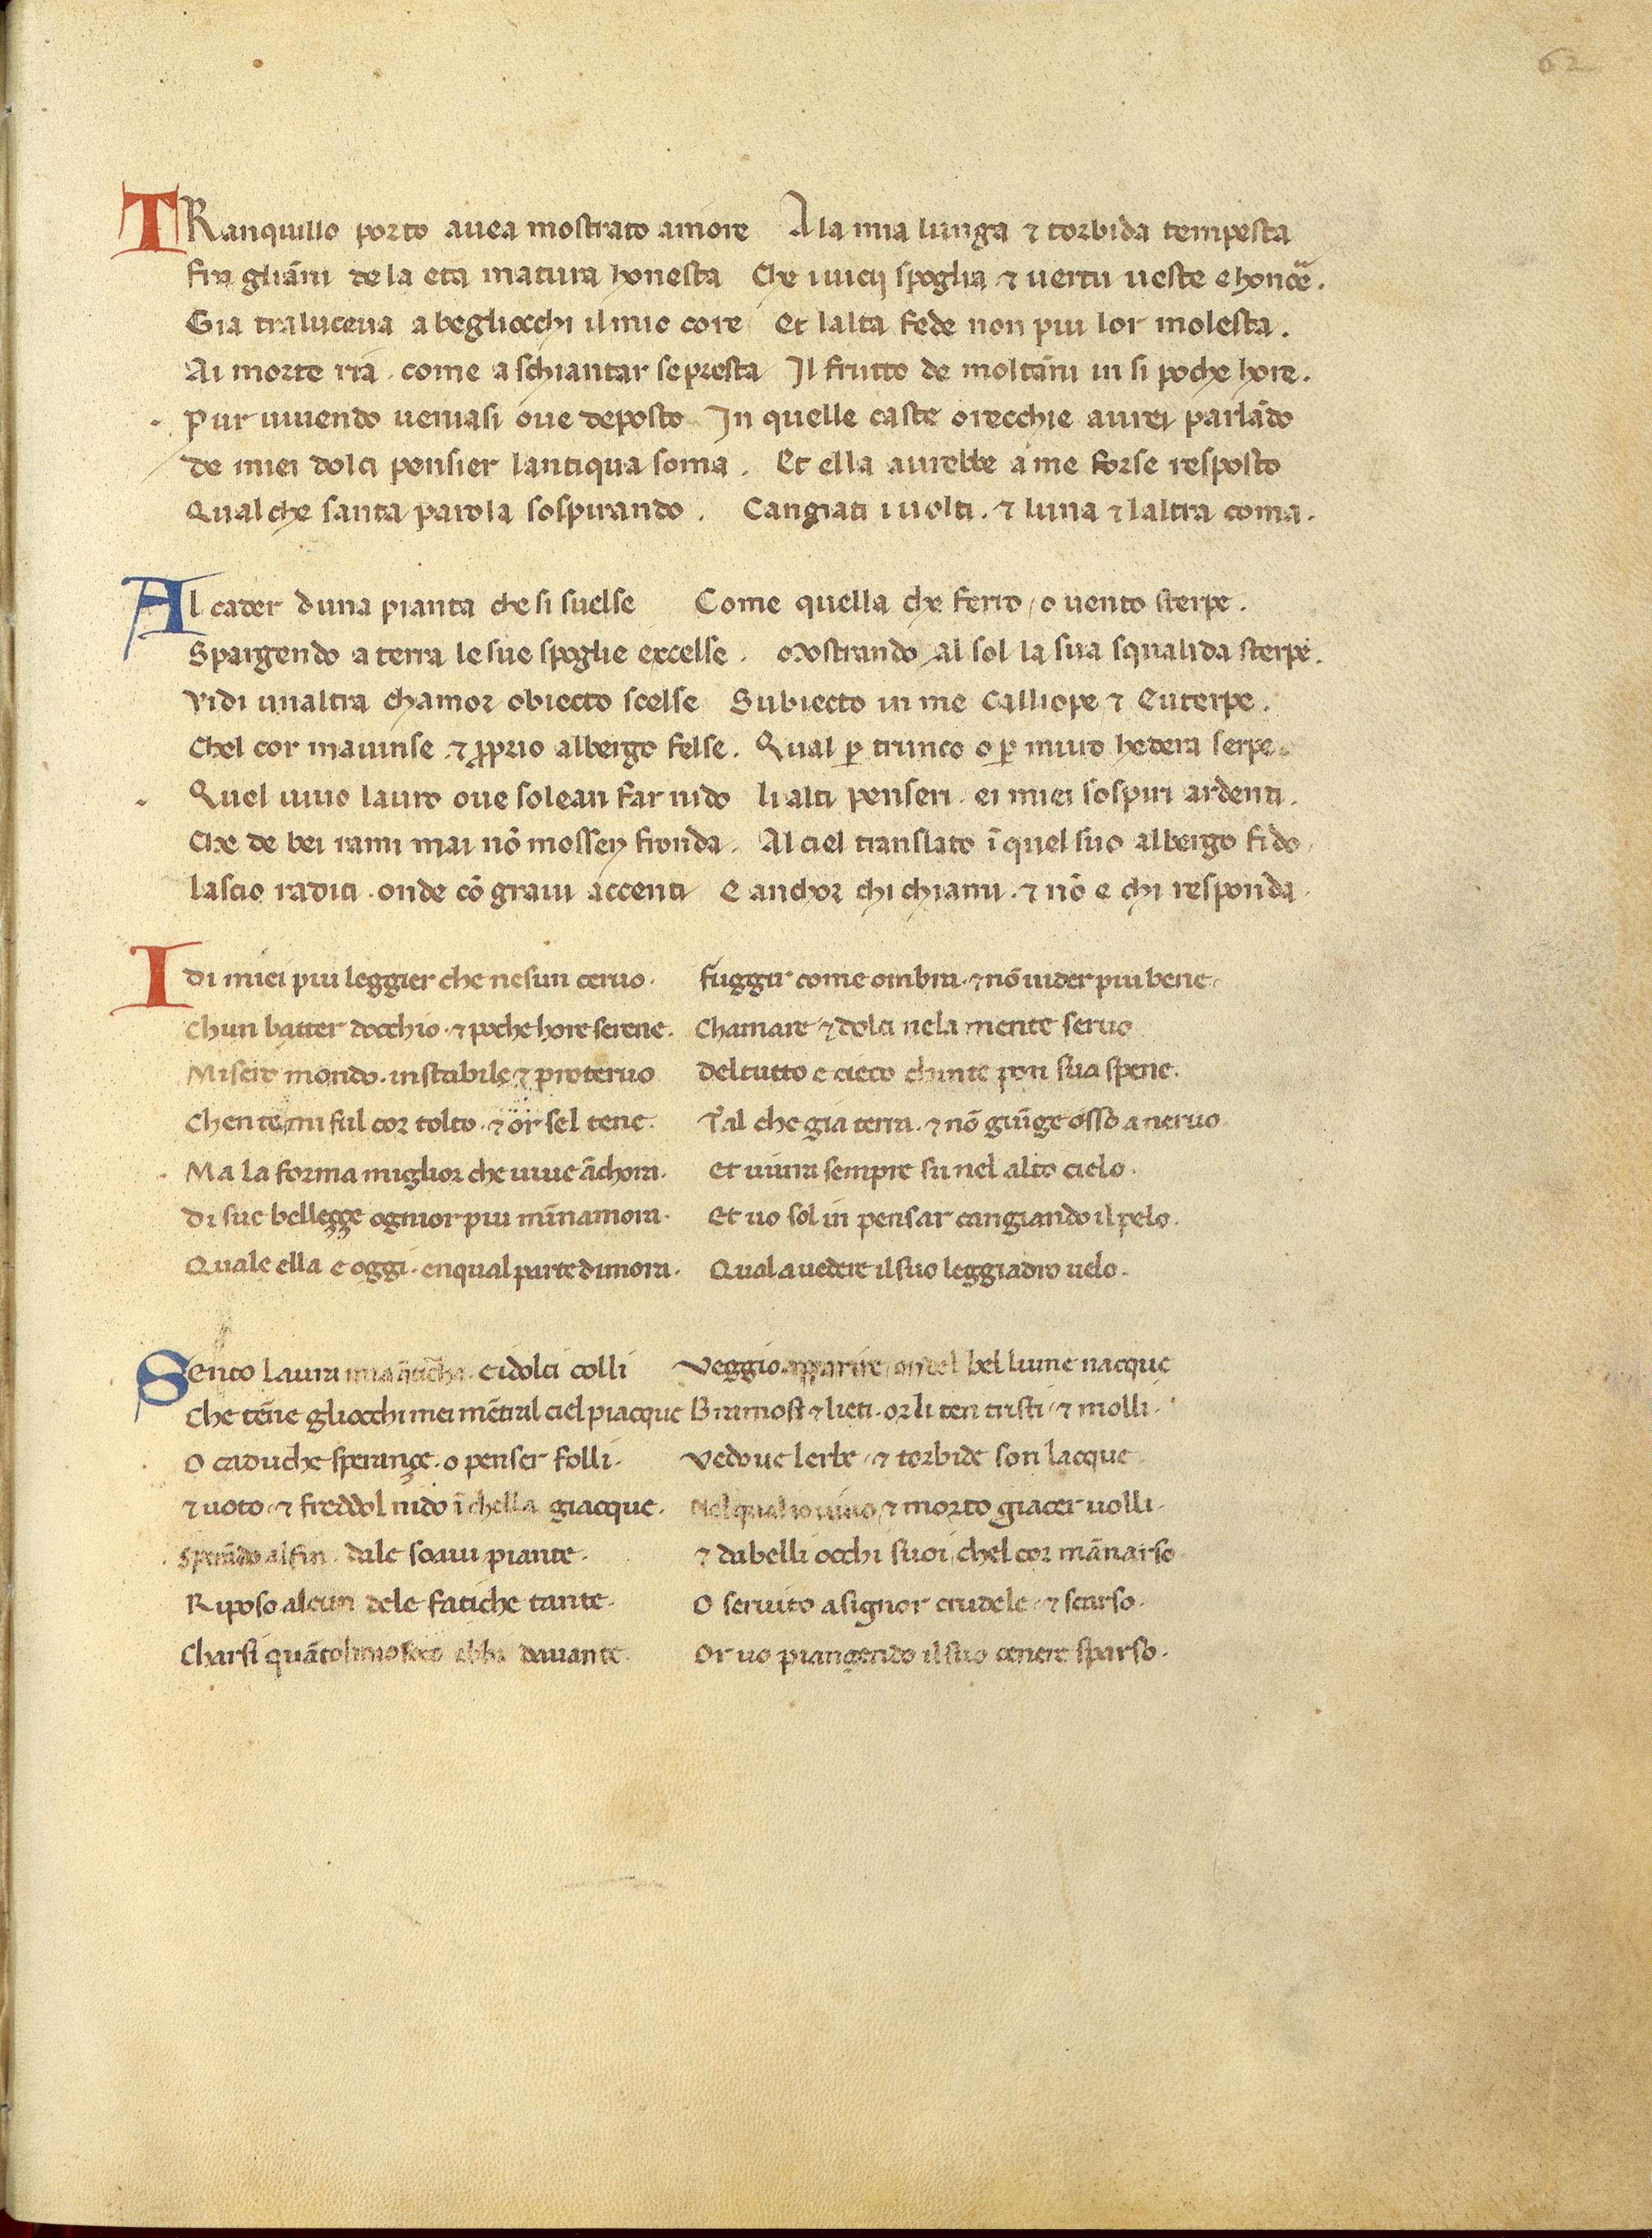 62
TRanquillo porto avea mostrato amore Ala mia lunga ⁊ torbida tempesta
fra gliāni de la eta matura honesta Che i uicij spoglia ⁊ uertu ueste e honore.
Gia traluceua a begliocchi il mio core Et lalta fede non piu lor molesta.
Ai morte ria, come a schiantar se presta Il frutto de moltāni in si poche hore.
Pur uiuendo ueniasi oue deposto In quelle caste orecchie aurei parlādo
de miei dolci pensier lantiqua soma. Et ella aurebbe a me forse resposto
Qualche santa parola sospirando. Cangiati i uolti. ⁊ luna ⁊ laltra coma.
Al cader duna pianta che si suelse Come quella che ferro, o uento sterpe.
Spargendo a terra le sue spoglie excelse. Mostrando al sol la sua squalida sterpe.
Vidi unaltra chamor obiecto scelse Subiecto in me Calliope, ⁊ Euterpe.
Chel cor mauinse. ⁊ ꝓprio albergo felse. Qual ꝑ trunco o ꝑ muro hedera serpe.
Quel uiuo lauro oue solean far nido li alti penseri. ei miei sospiri ardenti.
Che de bei rami mai nō mossen fronda. Al ciel translato ī quel suo albergo fido,
lascio radici. onde cō graui accenti E anchor chi chiami. ⁊ nō e chi responda.
I di miei piu leggier che nesun ceruo. fuggir come ombra. ⁊ nō uider piu bene.
Chun batter docchio. ⁊ poche hore serene. Chamare ⁊ dolci nela mente seruo
Misero mondo. instabile ⁊ proteruo Del tutto e cieco chi nte pon sua spene.
Chen te mi ful cor tolto. ⁊ or sel tene. Tal che gia terra. ⁊ nō giūge osso a neruo.
Ma la forma miglior che uiue āchora. Et uiura sempre su nel alto cielo.
Di sue belleççe ognior piu mīnamora. Et uo sol in pensar cangiando il pelo.
Quale ella e oggi. enqual parte dimora. Qual a uedere il suo leggiadro uelo.
Sento laura mia āticha. e i dolci colli Veggio apparire, ondel bel lume nacque
Che tēne gliocchi mei mētral ciel piacque Bramosi ⁊ lieti. or li ten tristi. ⁊ molli.
O caduche sperançe. o penser folli. Vedoue lerbe. ⁊ torbide son lacque.
⁊ uoto. ⁊ freddol nido ī chella giacque. Nel qual io uiuo, ⁊ morto giacer uolli.
Sperādo alfin. dale soaui piante. ⁊ dabelli occhi suoi, chel cor mānarso.
Riposo alcun dele fatiche tante. O seruito a signor crudele. ⁊ scarso.
Charsi quāto l mio foco ebbi dauante. Or uo piangendo il suo cenere sparso.